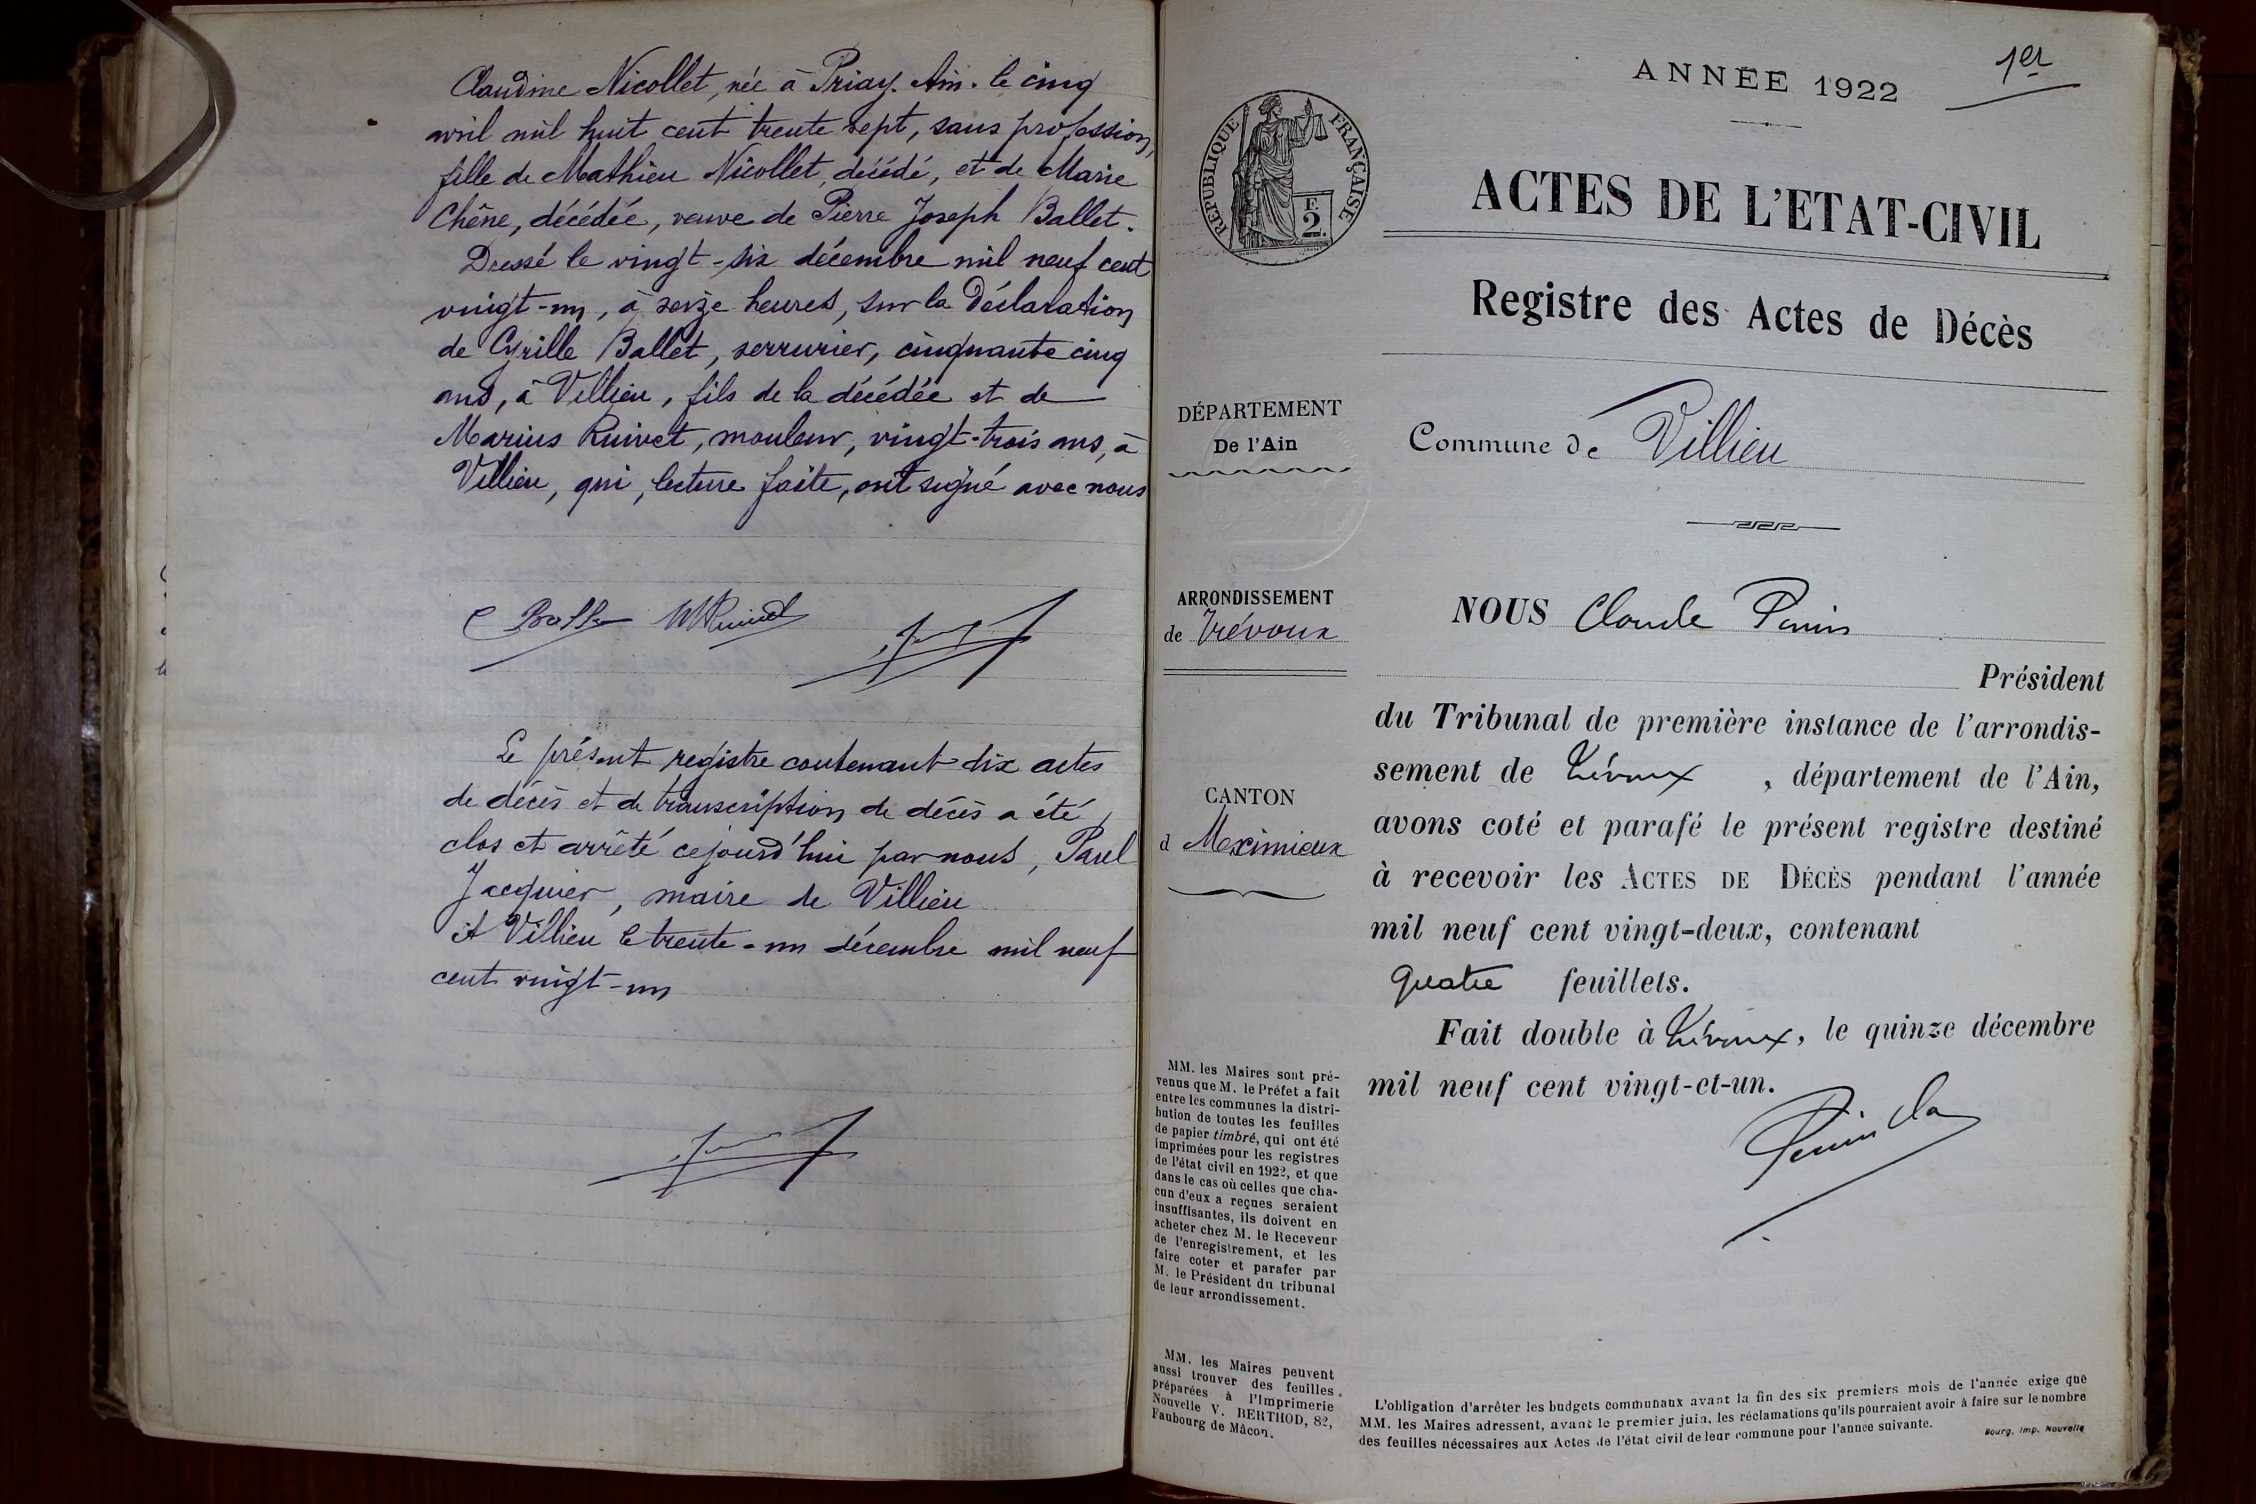 Claudine Nicollet, née à Priay. Ain. le cinq
avril mil huit cent trente sept, sans profession,
fille de Mathieu Nicollet, décédé, et de Marie
Chêne, décédée, veuve de Pierre Joseph Ballet.
Dressé le vingt-six décembre mil neuf cent
vingt-un, à seize heures, sur la déclaration
de Cyrille Ballet, serrurier, cinquante cinq
ans, à Villieu, fils de la décédée et de
Marius Ruivet, mouleur, vingt-trois ans, à
Villieu, qui, lecture faite, ont signé avec nous
Le présent registre contenant dix actes
de décès et de transcription de décès a été
clos et arrêté cejourd'hui par nous, Paul
Jacquier, maire de Villieu
A Villieu le trente-un décembre mil neuf
cent vingt-un
1er
ANNÉE 1922
RÉPUBLIQUE FRANÇAISE
F.
2.
ACTES DE L'ETAT-CIVIL
Registre des Actes de Décès
DÉPARTEMENT
De l'Ain
Commune de Villieu
ARRONDISSEMENT
de Trévoux
CANTON
d Meximieux
NOUS Claude
Président
du Tribunal de première instance de l'arrondis-
sement de Trévoux, département de l'Ain,
avons coté et parafé le présent registre destiné
à recevoir les ACTES DE DÉCÈS pendant l'année
mil neuf cent vingt-deux, contenant
quatre feuillets.
Fait double à Trévoux, le quinze décembre
mil neuf cent vingt-et-un.
MM. les Maires sont pré-
venus que M. le Préfet a fait
entre les communes la distri-
bution de toutes les feuilles
de papier timbré, qui ont été
imprimées pour les registres
de l'état civil en 1922, et que
dans le cas où celles que cha-
cun d'eux a reçues seraient
insuffisantes, ils doivent en
acheter chez M. le Receveur
de l'enregistrement, et les
faire coter et parafer par
M. le Président du tribunal
de leur arrondissement.
MM. les Maires peuvent
aussi trouver des feuilles
préparées à l'Imprimerie
Nouvelle V. BERTHOD, 82,
Faubourg de Mâcon.
L'obligation d'arrêter les budgets communaux avant la fin des six premiers mois de l'année exige que
MM. les Maires adressent, avant le premier juin, les réclamations qu'ils pourraient avoir à faire sur le nombre
des feuilles nécessaires aux Actes de l'état civil de leur commune pour l'année suivante.
Bourg, Imp. Nouvelle